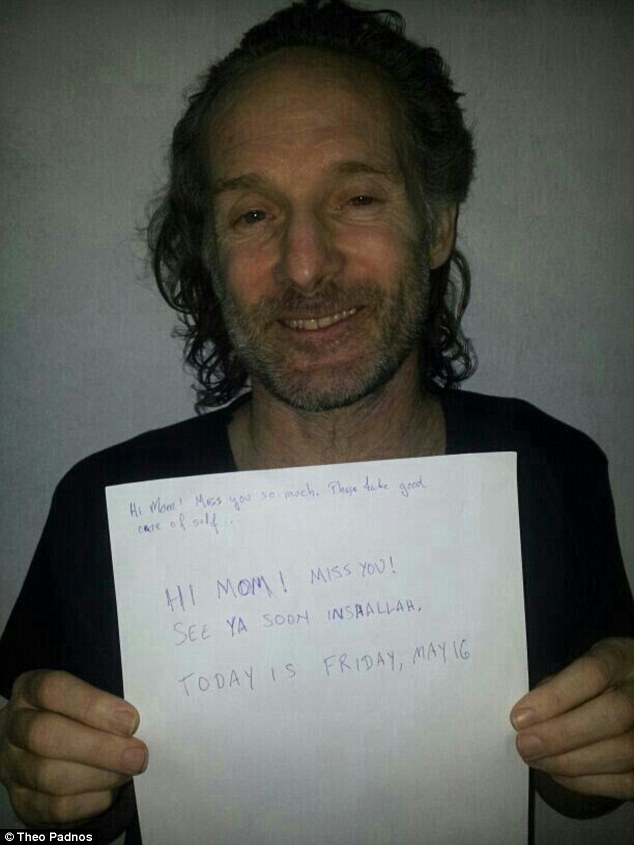 Hi Mom! Miss you so much. Please take good
care of self...
HI MOM! MISS YOU!
SEE YA SOON INSHALLAH.
TODAY IS FRIDAY, MAY 16
© Theo Padnos